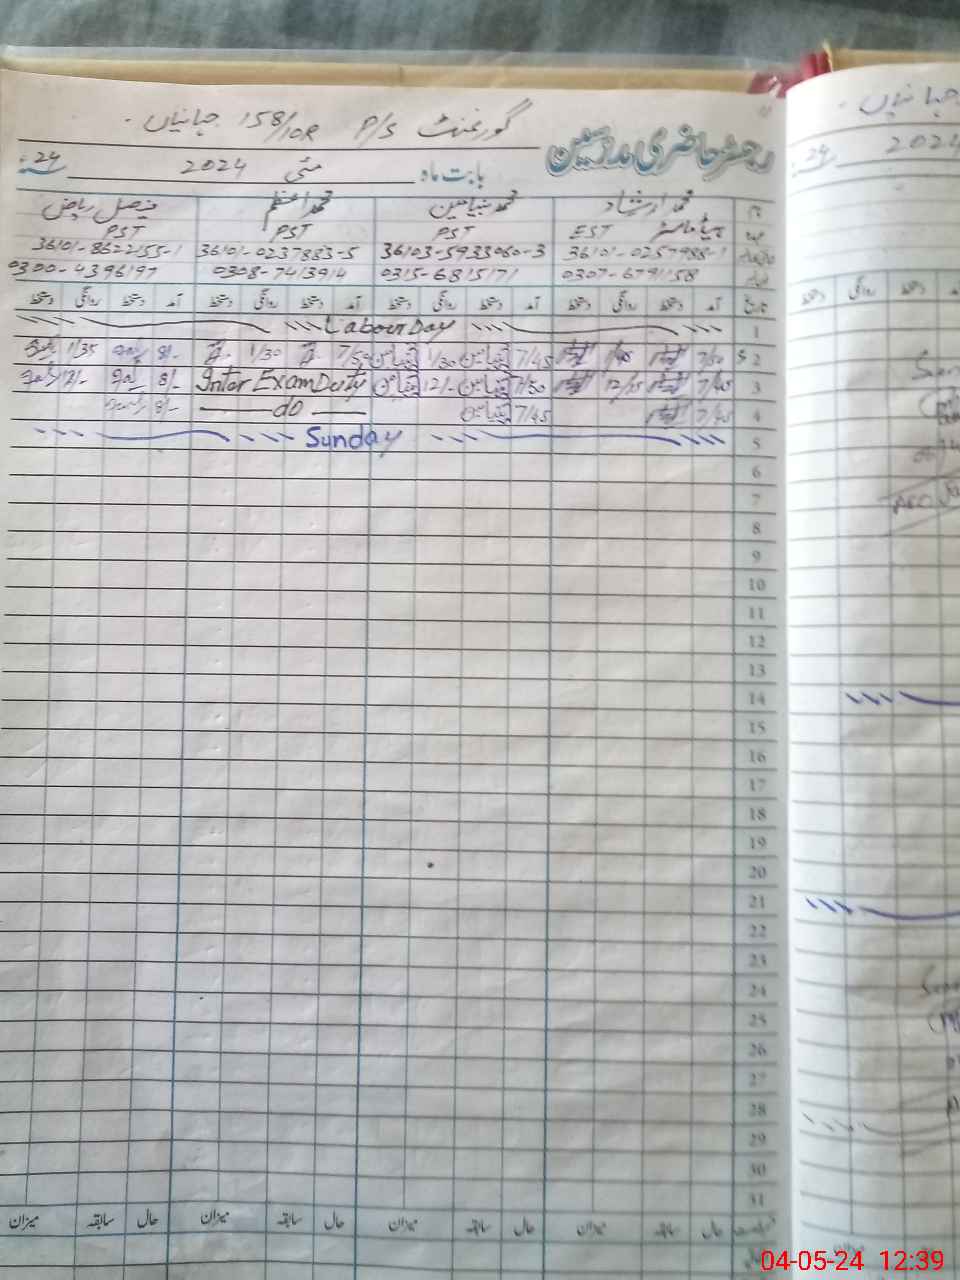 گورنمنٹ P/S 158/10R جہانیاں
رجسٹر حاضری مدرسین
بابت ماہ مئی 2024
24
محمد ارشاد محمد بنیامین محمد اعظم فیصل ریاض
EST PST PST PST
36101-0257988-1 36103-5933060-3 36101-0237883-5 36101-8622155-1
0307-6791158 0315-6815171 0308-7413914 0300-4396197
تاریخ آمد دستخط روانگی دستخط آمد دستخط روانگی دستخط آمد دستخط روانگی دستخط آمد دستخط روانگی دستخط
1 Labour Day
2 7/50 7/45 بنیامین 1/30 بنیامین 7/50 1/30 8/- 1/35
3 7/45 12/15 7/50 بنیامین 12/- بنیامین Inter Exam Duity 8/- 12/-
4 7/45 7/45 بنیامین do 8/-
5 Sunday
6
7
8
9
10
11
12
13
14
15
16
17
18
19
20
21
22
23
24
25
26
27
28
29
30
31
حال سابقہ میزان حال سابقہ میزان حال سابقہ میزان حال سابقہ میزان
جہانیاں
2024
24
04-05-24 12:39